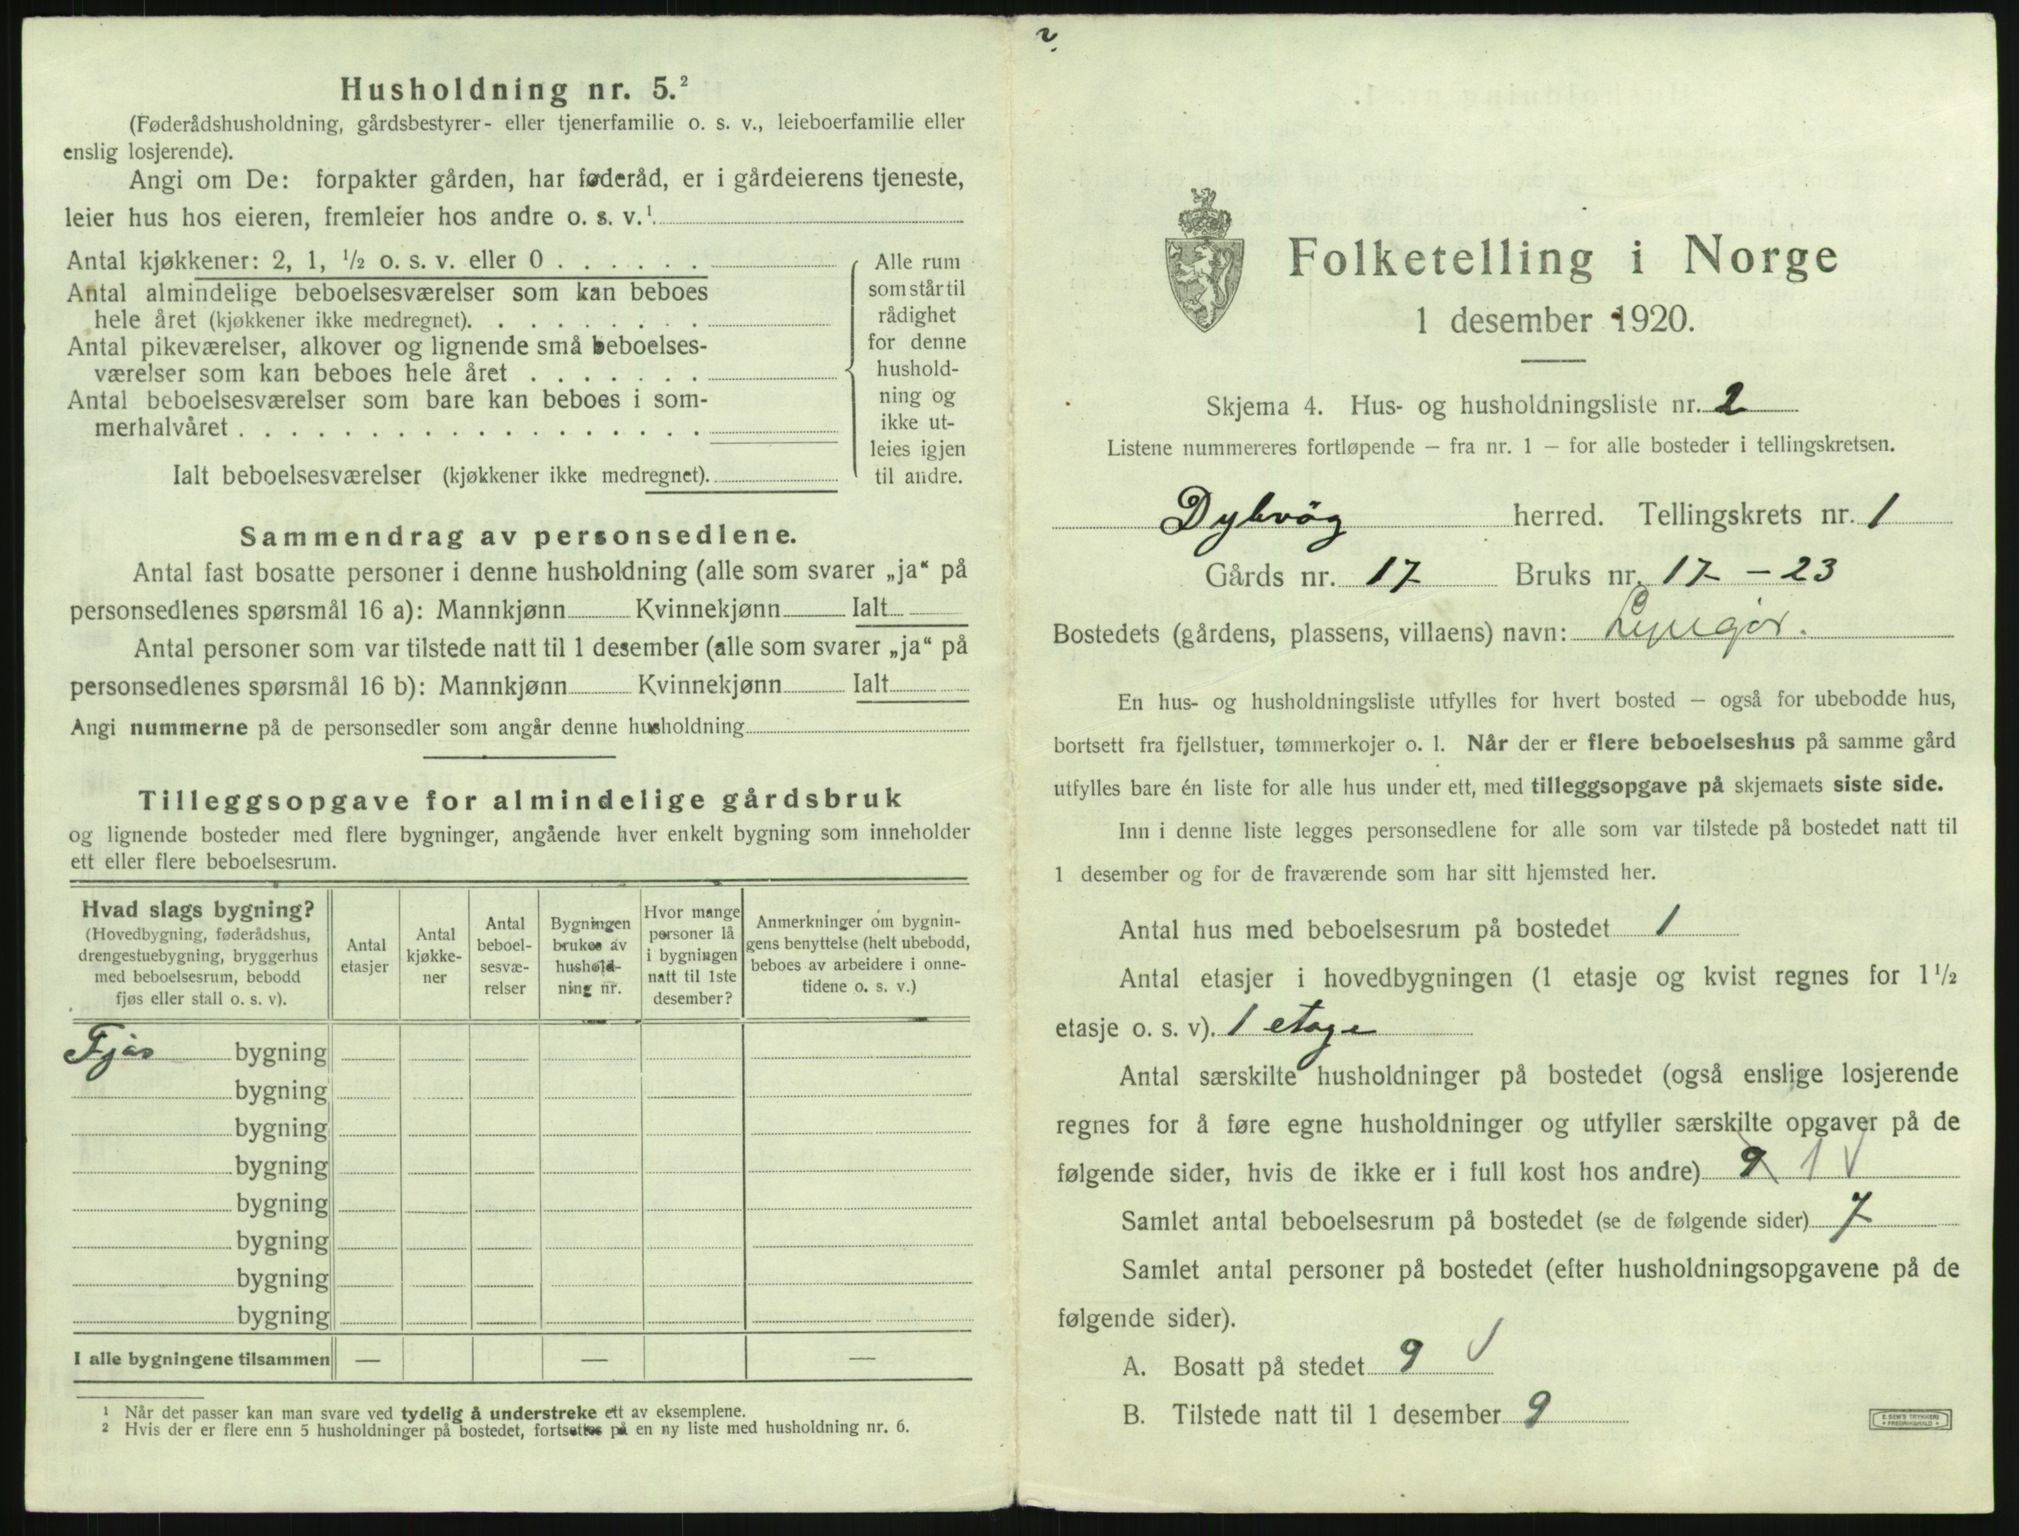 Husholdning nr. 5.²
(Føderådshusholdning, gårdsbestyrer- eller tjenerfamilie o. s. v., leieboerfamilie eller
enslig losjerende).
Angi om De: forpakter gården, har føderåd, er i gårdeierens tjeneste,
leier hus hos eieren, fremleier hos andre o. s. v.¹
Antal kjøkkener: 2, 1, ½ o. s. v. eller 0 . . . . . .
Antal almindelige beboelsesværelser som kan beboes
hele året (kjøkkener ikke medregnet). . . . . . . . .
Antal pikeværelser, alkover og lignende små beboelses-
værelser som kan beboes hele året . . . . . . .
Antal beboelsesværelser som bare kan beboes i som-
merhalvåret . . . . . . . . . . . . . . . . . .
Ialt beboelsesværelser (kjøkkener ikke medregnet).
Alle rum
som står til
rådighet
for denne
hushold-
ning og
ikke ut-
leies igjen
til andre.
Sammendrag av personsedlene.
Antal fast bosatte personer i denne husholdning (alle som svarer „ja“ på
personsedlenes spørsmål 16 a): Mannkjønn Kvinnekjønn Ialt
Antal personer som var tilstede natt til 1 desember (alle som svarer „ja“ på
personsedlenes spørsmål 16 b): Mannkjønn Kvinnekjønn Ialt
Angi nummerne på de personsedler som angår denne husholdning
Tilleggsopgave for almindelige gårdsbruk
og lignende bosteder med flere bygninger, angående hver enkelt bygning som inneholder
ett eller flere beboelsesrum.
Hvad slags bygning?
(Hovedbygning, føderådshus,
drengestuebygning, bryggerhus
med beboelsesrum, bebodd
fjøs eller stall o. s. v).
Antal
etasjer
Antal
kjøkke-
ner
Antal
beboel-
sesvæ-
relser
Bygningen
brukes av
hushold-
ning nr.
Hvor mange
personer lå
i bygningen
natt til 1ste
desember?
Anmerkninger om bygnin-
gens benyttelse (helt ubebodd,
beboes av arbeidere i onne-
tidene o. s. v.)
Fjøs bygning
bygning
bygning
bygning
bygning
bygning
bygning
bygning
I alle bygningene tilsammen — — —
¹ Når det passer kan man svare ved tydelig å understreke ett av eksemplene.
² Hvis der er flere enn 5 husholdninger på bostedet, fortsettes på en ny liste med husholdning nr. 6.
Folketelling i Norge
1 desember 1920.
Skjema 4. Hus- og husholdningsliste nr. 2
Listene nummereres fortløpende – fra nr. 1 – for alle bosteder i tellingskretsen.
Dybvåg herred. Tellingskrets nr. 1
Gårds nr. 17 Bruks nr. 17 – 23
Bostedets (gårdens, plassens, villaens) navn: Lyngør.
En hus- og husholdningsliste utfylles for hvert bosted – også for ubebodde hus,
bortsett fra fjellstuer, tømmerkojer o. l. Når der er flere beboelseshus på samme gård
utfylles bare én liste for alle hus under ett, med tilleggsopgave på skjemaets siste side.
Inn i denne liste legges personsedlene for alle som var tilstede på bostedet natt til
1 desember og for de fraværende som har sitt hjemsted her.
Antal hus med beboelsesrum på bostedet 1
Antal etasjer i hovedbygningen (1 etasje og kvist regnes for 1½
etasje o. s. v). 1 etage
Antal særskilte husholdninger på bostedet (også enslige losjerende
regnes for å føre egne husholdninger og utfyller særskilte opgaver på de
følgende sider, hvis de ikke er i full kost hos andre) 9 1 √
Samlet antal beboelsesrum på bostedet (se de følgende sider) 7
Samlet antal personer på bostedet (efter husholdningsopgavene på de
følgende sider).
A. Bosatt på stedet 9 √
B. Tilstede natt til 1 desember 9
E. SEM'S TRYKKERI
FREDRIKSHALD